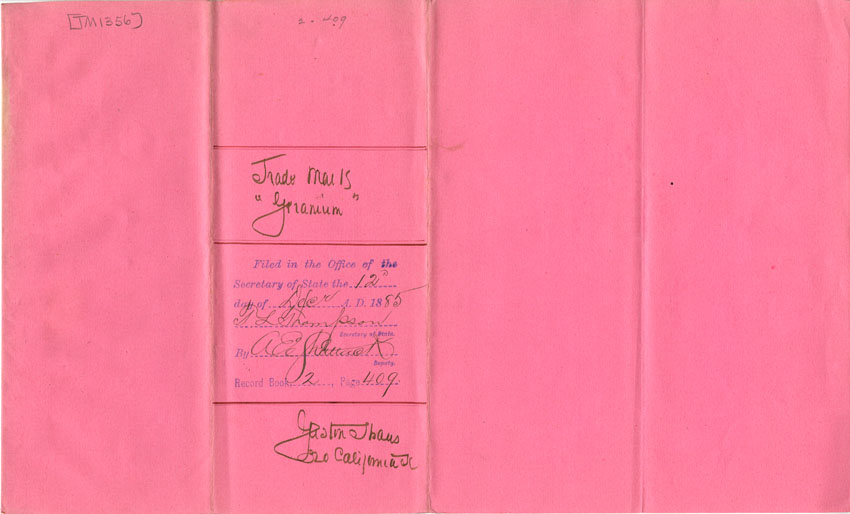 [TM1356]
2 - 409
Trade Mark
"Geranium"
Filed in the Office of the
Secretary of State the 12
day of Decr A. D. 1885
T L Thompson
Secretary of State.
By A E
Deputy.
Record Book 2, Page 409.
Gaston
320 California St